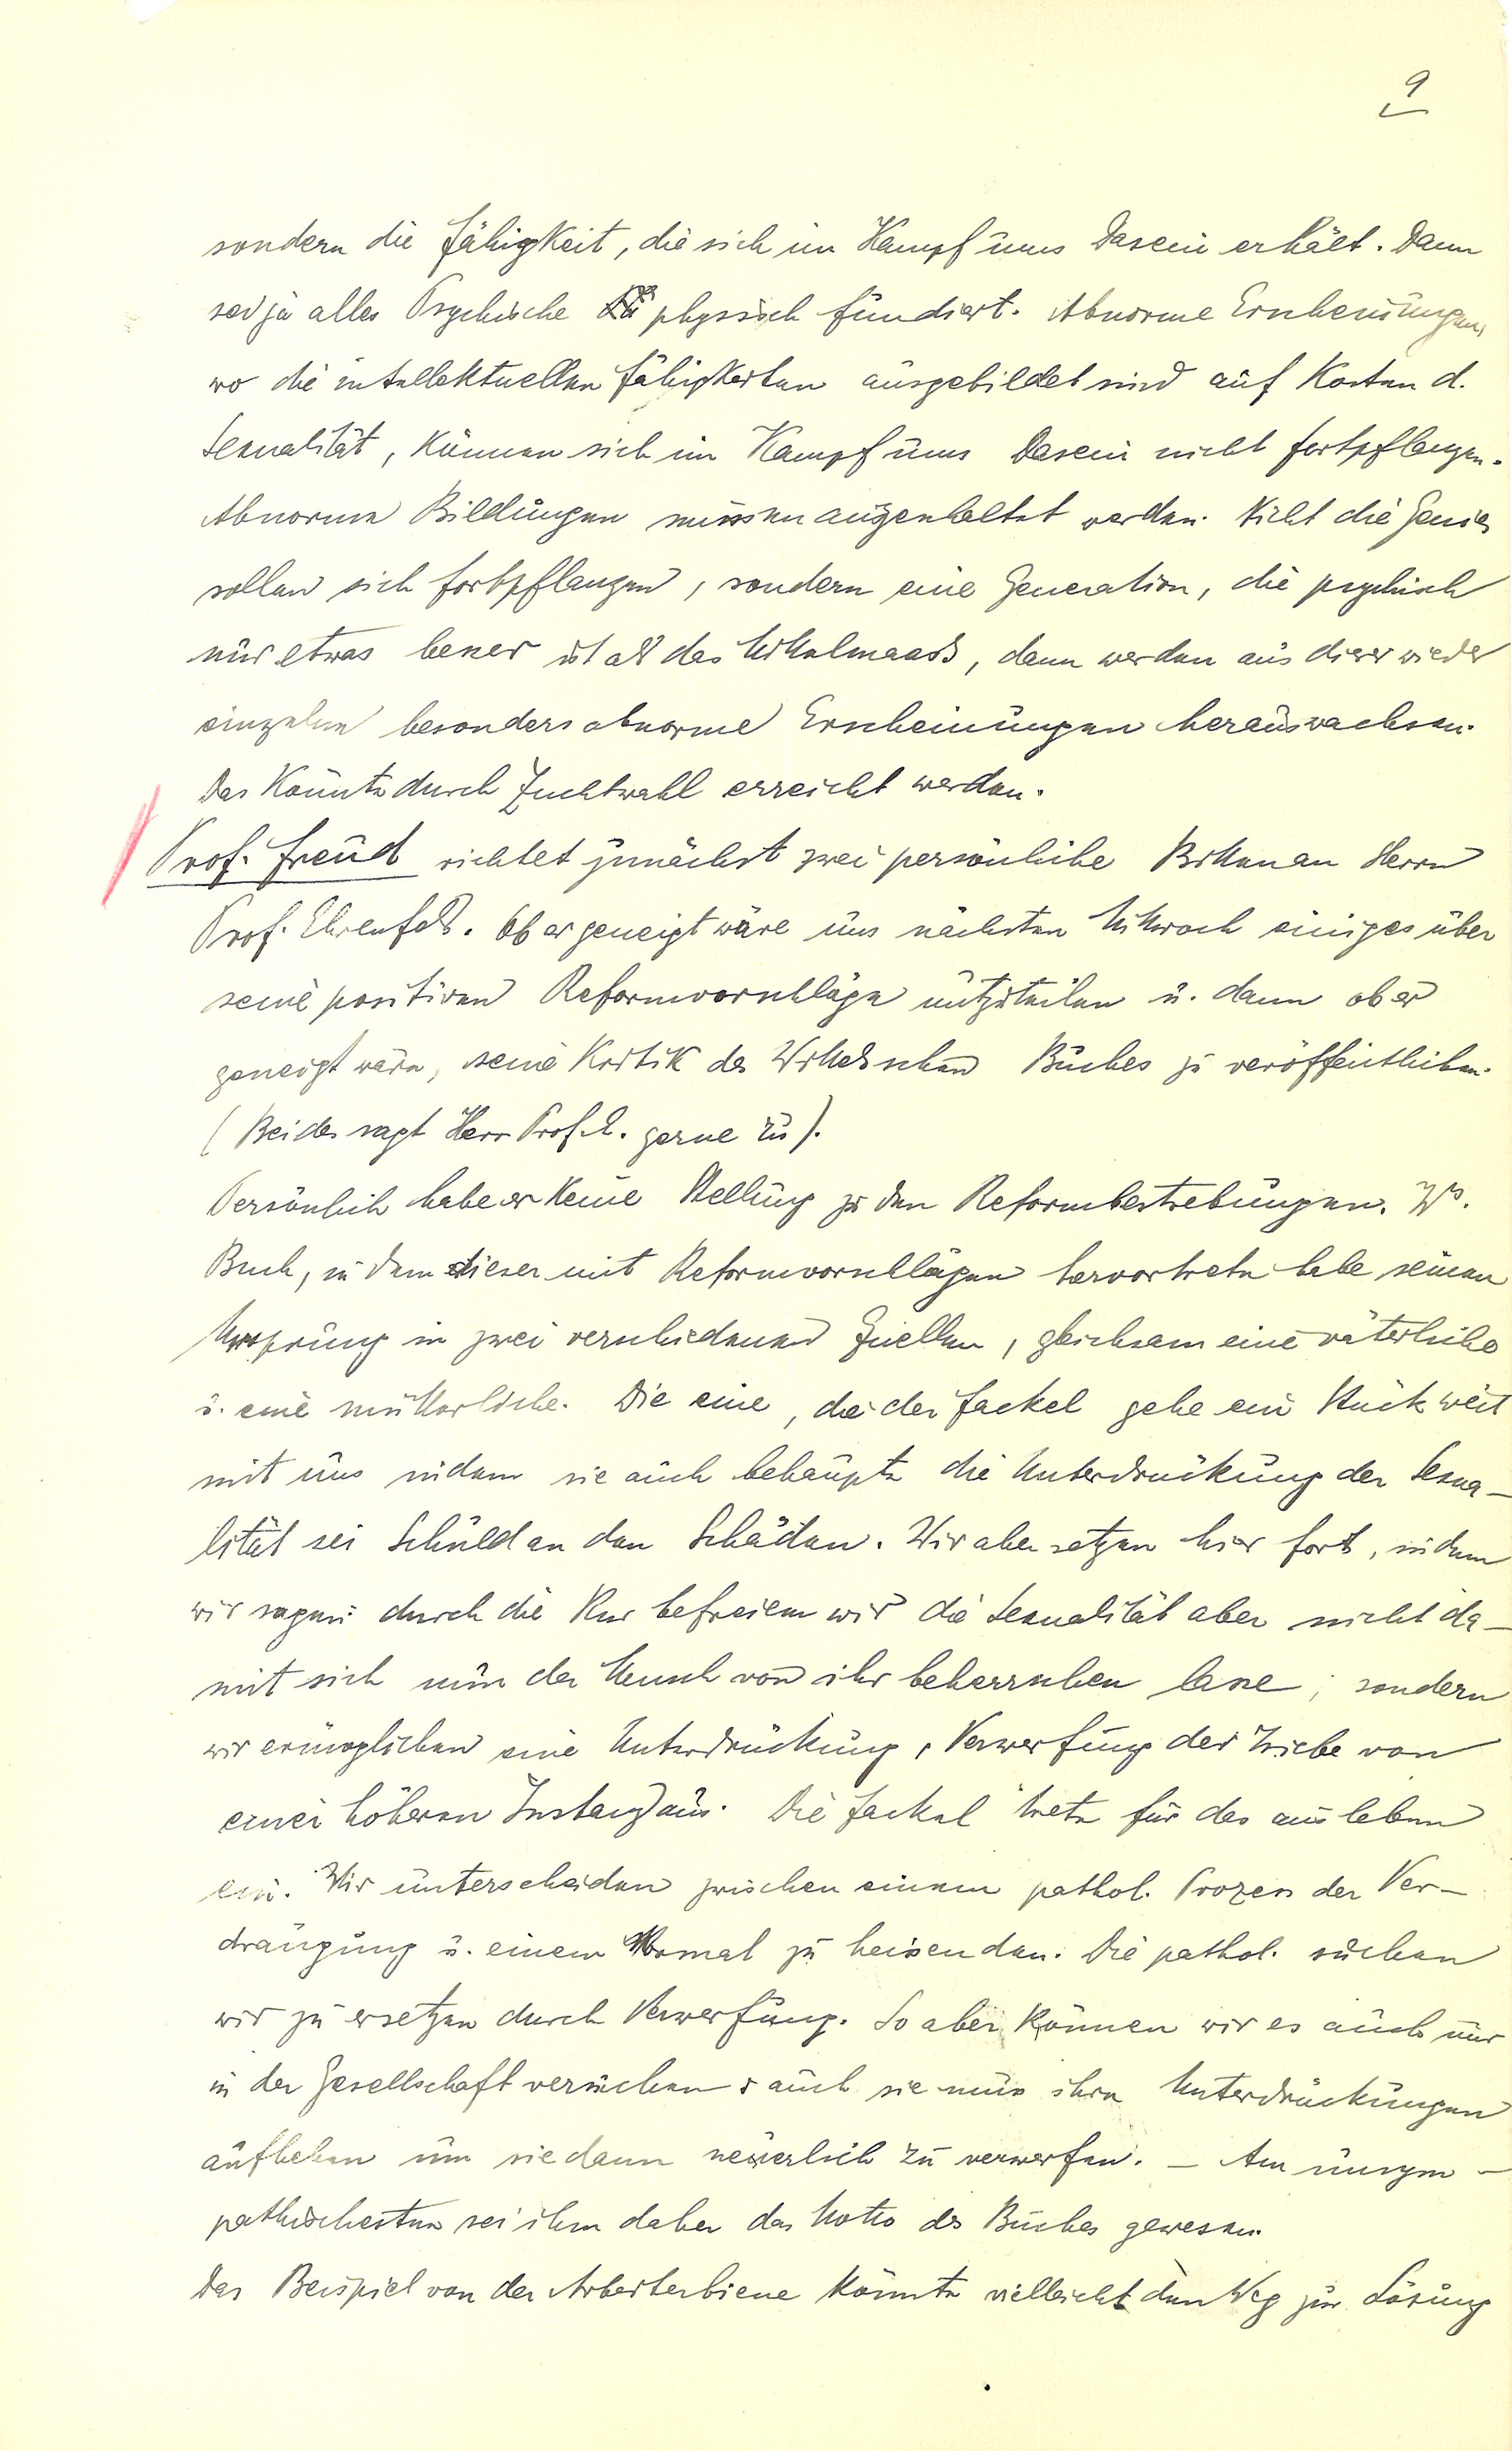 9
sondern die Fähigkeit, die sich im Kampf ums Dasein erhält. Dann
sei ja alles Psychische physisch fundiert. Abnorme Erscheinungen,
wo die intellektuellen Fähigkeiten ausgebildet sind auf Kosten d.
Sexualität, können sich im Kampf ums Dasein nicht fortpflanzen.
Abnorme Bildungen müssen ausgeschaltet werden. Nicht die Genies
sollen sich fortpflanzen, sondern eine Generation, die psychisch
nur etwas besser ist als das Mittelmaass, dann werden aus dieser wieder
einzelne besonders abnorme Erscheinungen herauswachsen.
Das könnte durch Zuchtwahl erreicht werden.
Prof. Freud richtet zunächst zwei persönliche Bitten an Herrn
Prof. Ehrenfels. Ob er geneigt wäre uns nächsten Mittwoch einiges über
seine positiven Reformvorschläge mitzuteilen u. dann ob er
geneigt wäre, seine Kritik des Wittelsschen Buches zu veröffentlichen.
(Beides sagt Herr Prof. E. gerne zu).
Persönlich habe er keine Stellung zu den Reformbestrebungen. W's.
Buch, in dem dieser mit Reformvorschlägen hervortrete habe seinen
Ursprung in zwei verschiedenen Quellen, gleichsam eine väterliche
u. eine mütterliche. Die eine, die der Fackel gehe ein Stück weit
mit uns indem sie auch behaupte die Unterdrückung der Sexua-
lität sei Schuld an den Schäden. Wir aber setzen hier fort, indem
wir sagen: durch die Kur befreien wir die Sexualität aber nicht da-
mit sich nun der Mensch von ihr beherrschen lasse, sondern
wir ermöglichen eine Unterdrückung, Verwerfung der Triebe von
einer höheren Instanz aus. Die Fackel trete für das ausleben
ein. Wir unterscheiden zwischen einem pathol. Prozess der Ver-
drängung u. einem Normal zu heissenden. Die pathol. suchen
wir zu ersetzen durch Verwerfung. So aber können wir es auch nur
in der Gesellschaft versuchen; auch sie muss ihre Unterdrückungen
aufheben um sie dann neuerlich zu verwerfen. – Am unsym-
pathischesten sei ihm daher das Motto des Buches gewesen.
Das Beispiel von der Arbeiterbiene könnte vielleicht den Weg zur Lösung